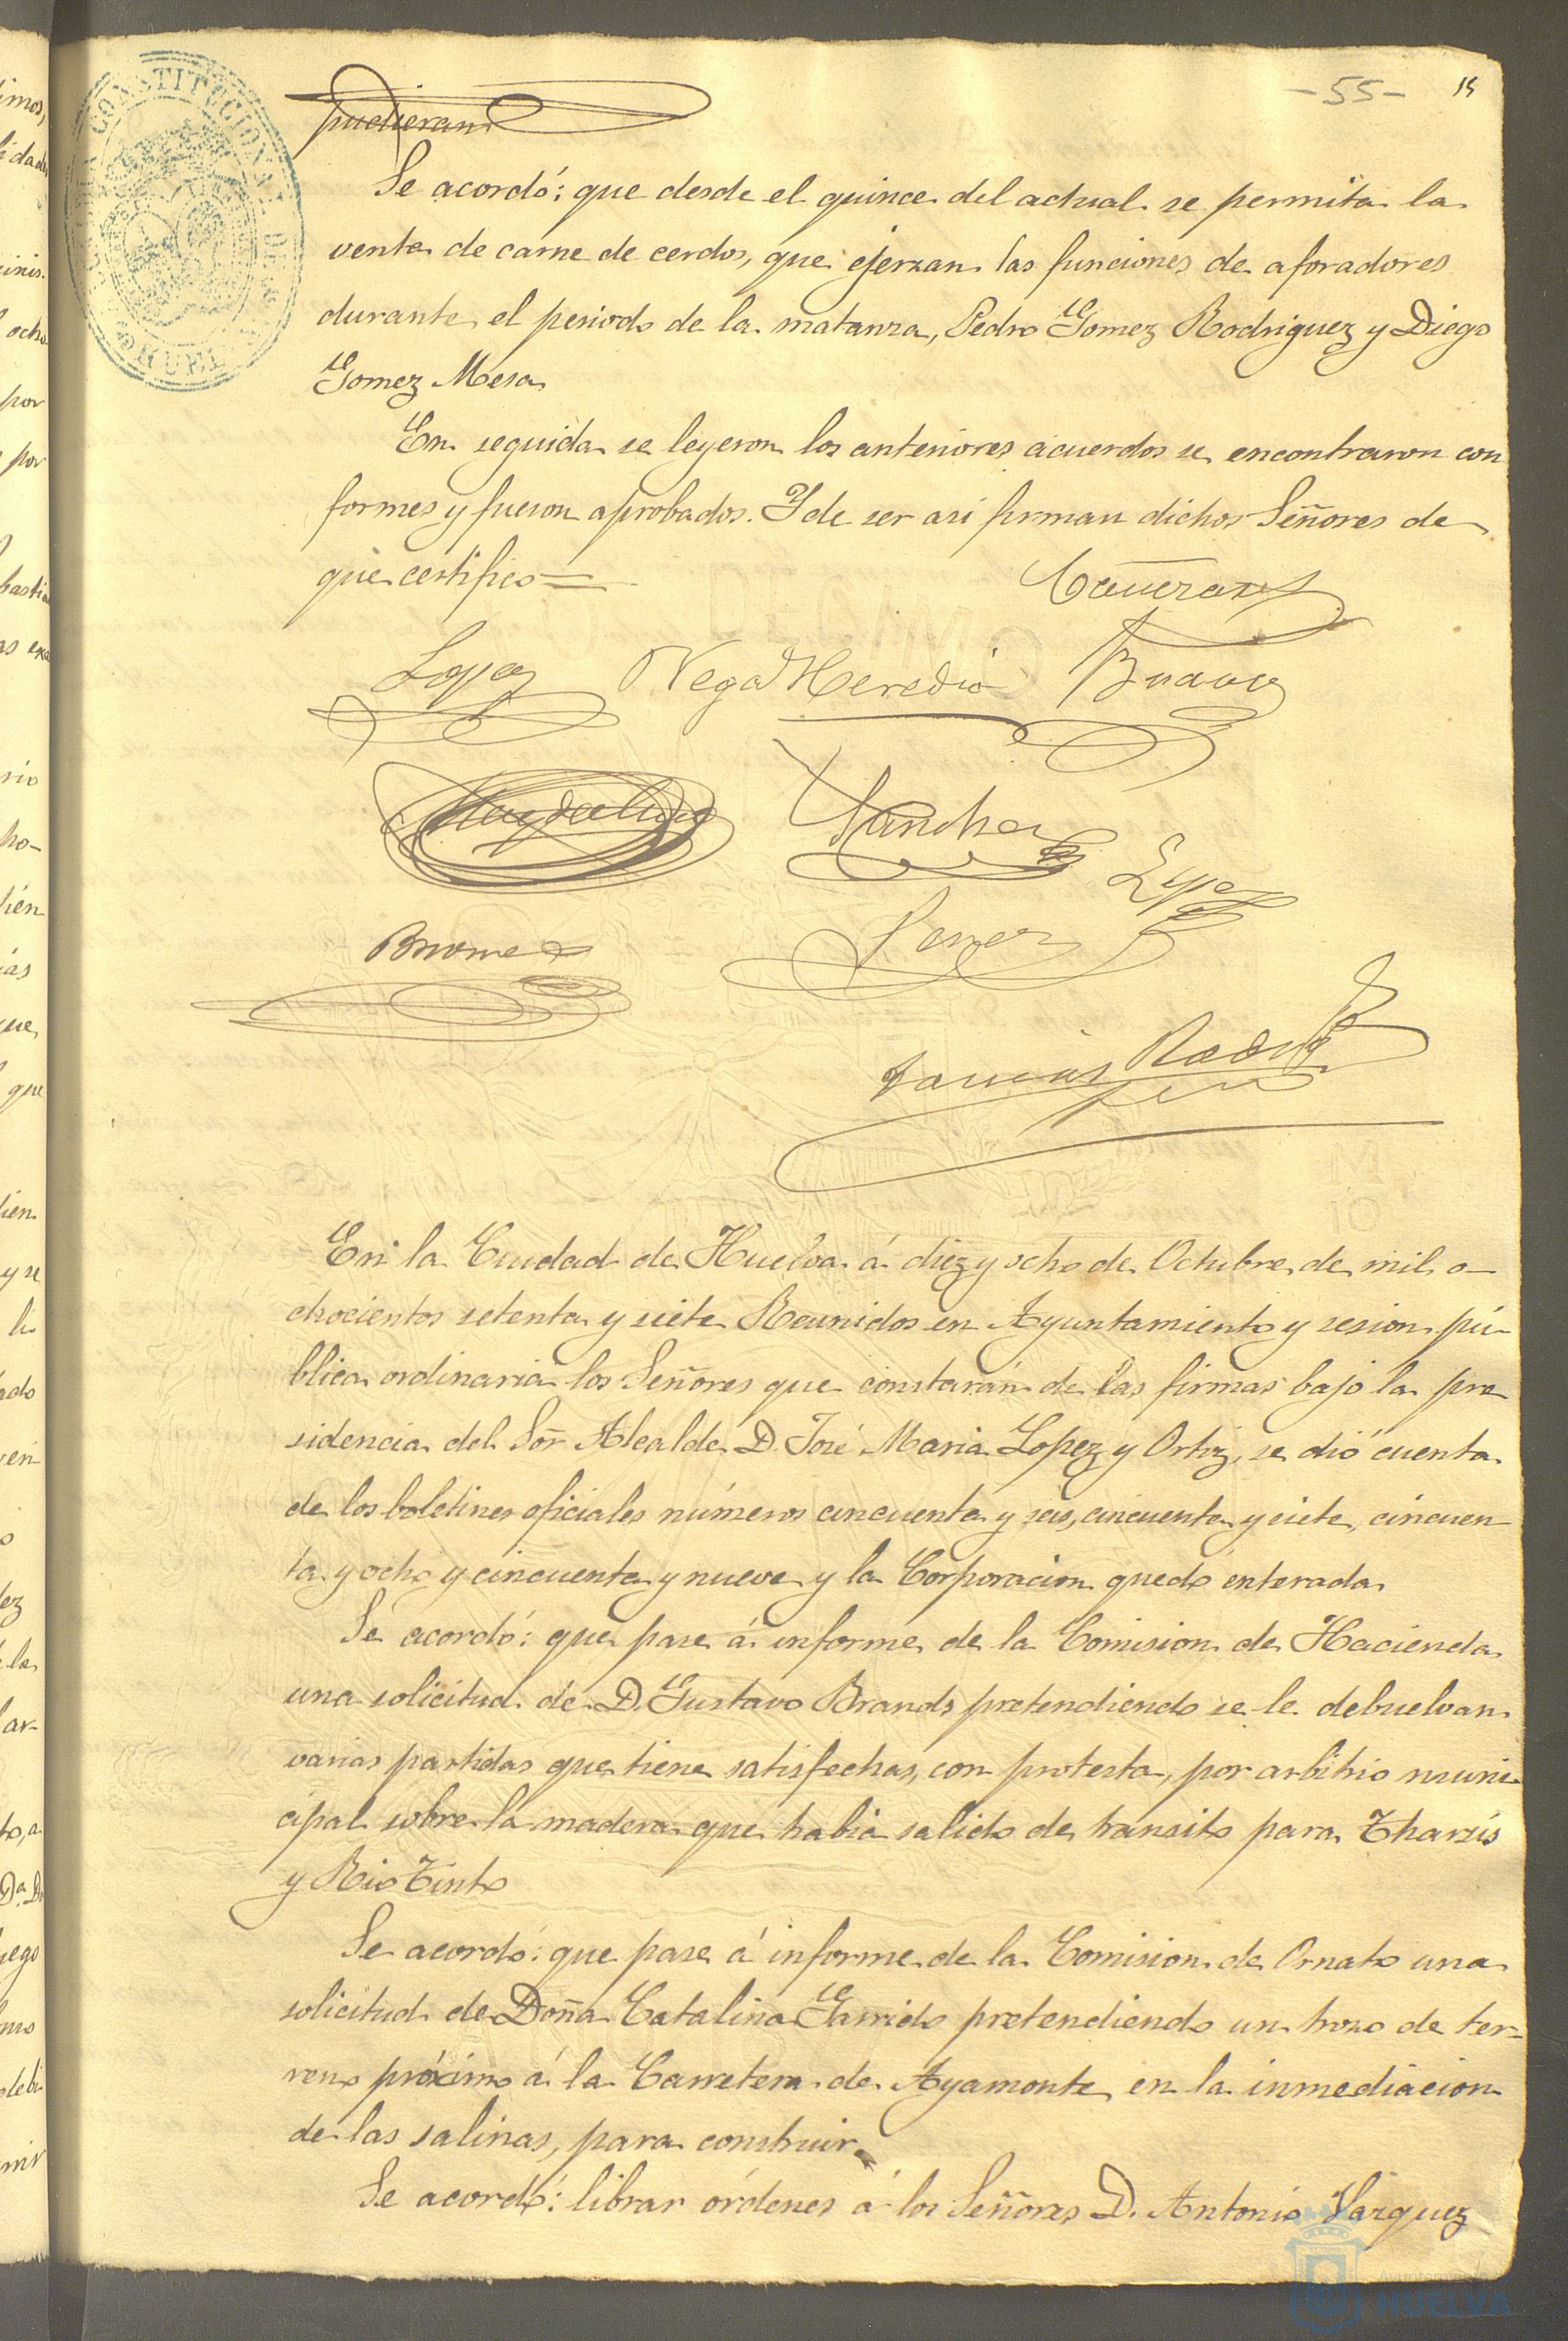 -55-
15
pudieran
Se acordó: que desde el quince del actual se permita la
venta de carne de cerdos, que ejerzan las funciones de aforadores
durante el periodo de la matanza, Pedro Gomez Rodriguez y Diego
Gomez Mesa
En seguida se leyeron los anteriores acuerdos se encontraron con
formes y fueron aprobados. Y de ser asi firman dichos Señores de
que certifico=
Lopez Vega Heredia Bravo
Sanchez
Lopez
Perez
En la Ciudad de Huelva á diez y ocho de Octubre de mil o-
chocientos setenta y siete Reunidos en Ayuntamiento y sesion pú-
blica ordinaria los Señores que constarán de las firmas bajo la pre
sidencia del Sor Alcalde D. José Maria Lopez y Ortiz, se dió cuenta
de los boletines oficiales números cincuenta y seis, cincuenta y siete, cincuen
ta y ocho y cincuenta y nueve y la Corporacion quedó enterada
Se acordó: que pase á informe de la Comision de Hacienda
una solicitud de D. Gustavo Brands pretendiendo se le debuelvan
varias partidas que tiene satisfechas, con protesta, por arbitrio muni
cipal sobre la madera que habia salido de transito para Tharsis
y Rio Tinto
Se acordó: que pase á informe de la Comision de Ornato una
solicitud de Doña Catalina Garrido pretendiendo un trozo de ter-
reno próximo á la Carretera de Ayamonte en la inmediacion
de las salinas, para construir.
Se acordó: librar órdenes á los Señores D. Antonio Vazquez
Ayuntamiento
HUELVA